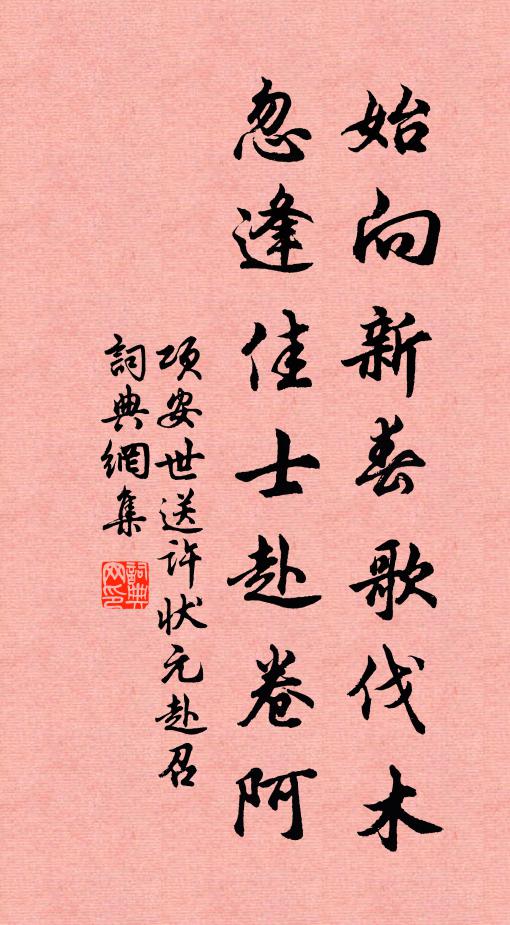 始向新春歌伐木
忽逢佳士赴卷阿
项安世送许状元赴召
詞典網集
詞典网印